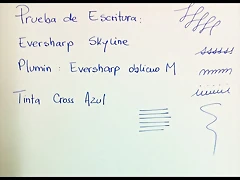 Prueba de Escritura:
Eversharp Skyline
Plumin: Eversharp oblicuo M
Tinta Cross Azul